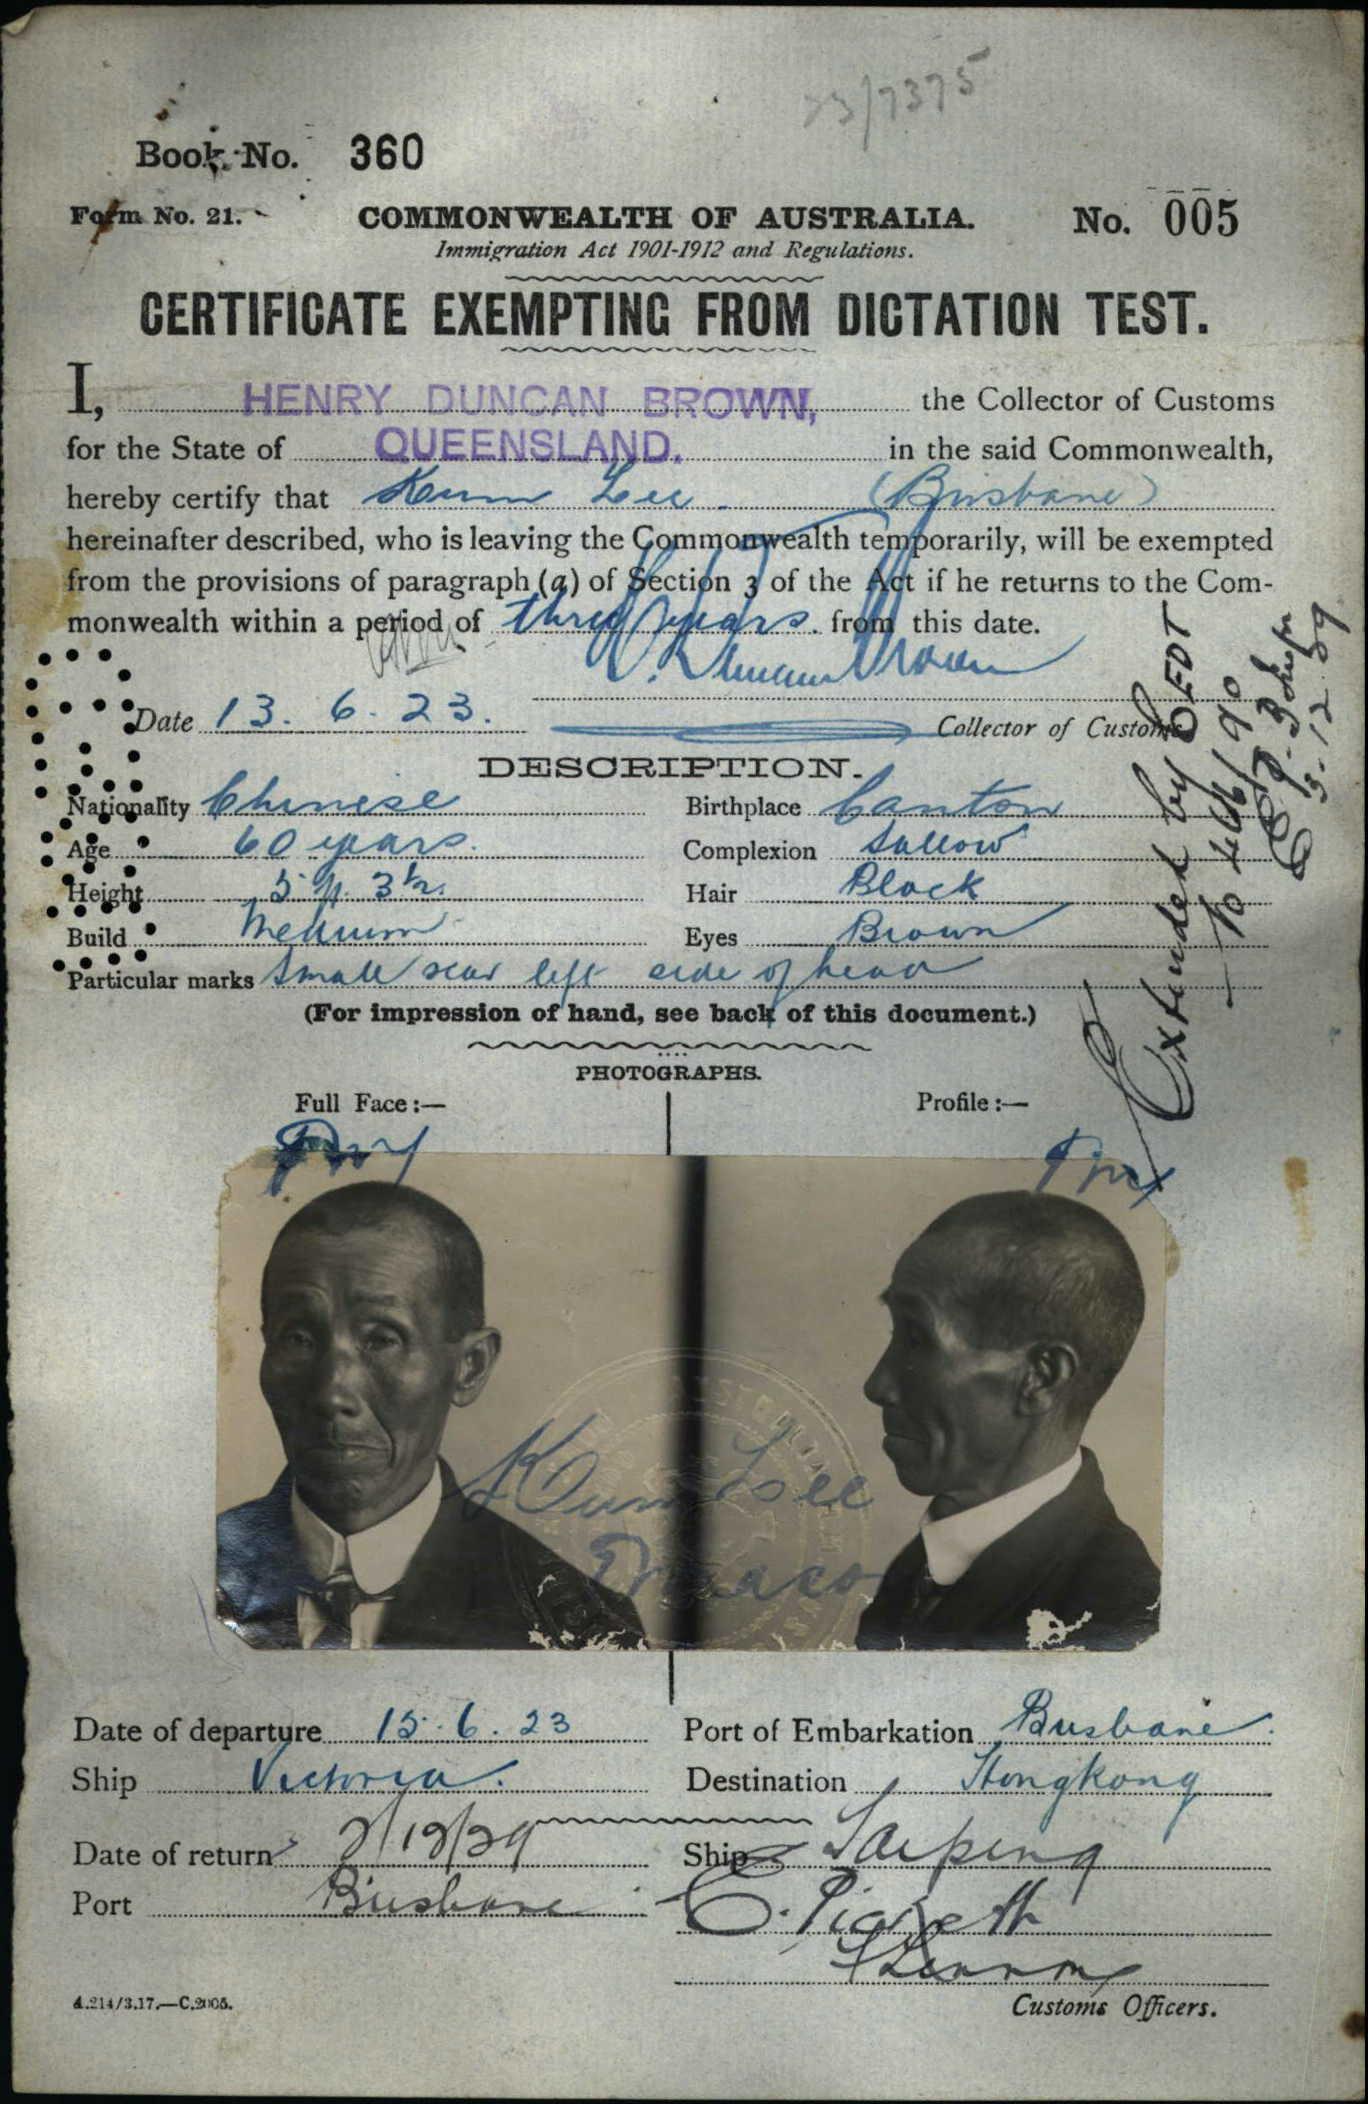 23/7375
Book No. 360
Form No. 21. COMMONWEALTH OF AUSTRALIA. No. 005
Immigration Act 1901-1912 and Regulations.
CERTIFICATE EXEMPTING FROM DICTATION TEST.
I, HENRY DUNCAN BROWN, the Collector of Customs
for the State of QUEENSLAND. in the said Commonwealth,
hereby certify that Kum Lee. (Brisbane)
hereinafter described, who is leaving the Commonwealth temporarily, will be exempted
from the provisions of paragraph (a) of Section 3 of the Act if he returns to the Com-
monwealth within a period of three years. from this date.
H. Duncan Brown
Date 13. 6. 23. Collector of Customs
DESCRIPTION.
Nationality Chinese Birthplace Canton
Age 60 years. Complexion Sallow
Height 5 ft. 3 1/2. Hair Black
Build Medium Eyes Brown
Particular marks Small scar left side of head
(For impression of hand, see back of this document.)
Extended by CEDT
466/90
3.12.29
PHOTOGRAPHS.
Full Face:— Profile:—
Kum Lee
Date of departure 15.6.23 Port of Embarkation Brisbane.
Ship Victoria. Destination Hongkong
Date of return 2/12/29 Ship Taiping
Port Brisbane
Customs Officers.
A.214/3.17.—C.2005.